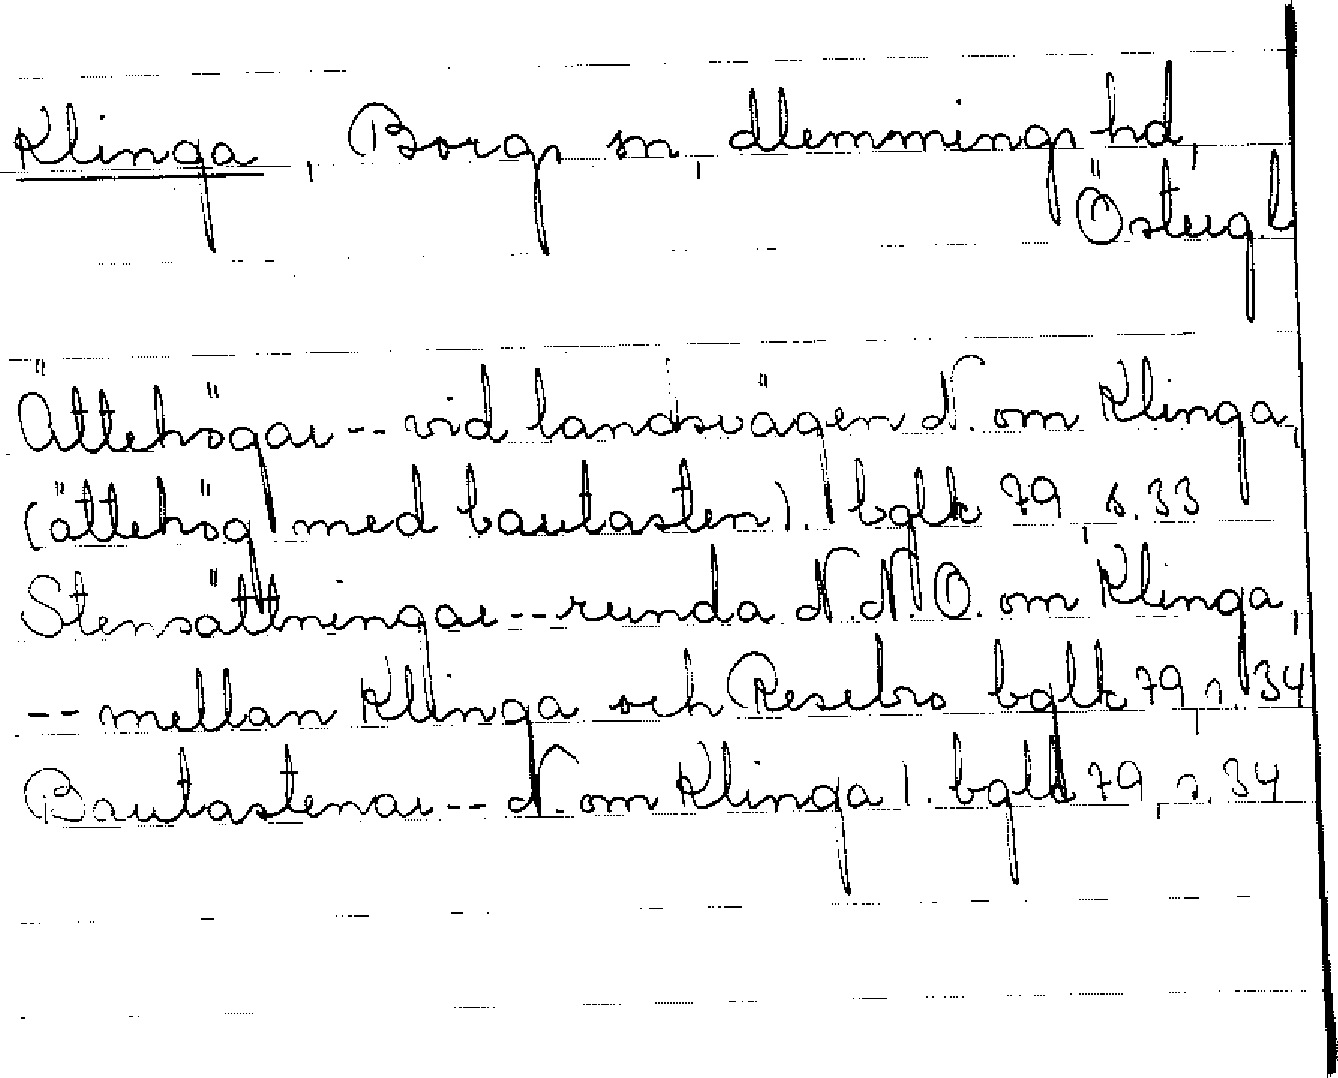 Klinga, Borgs sn, Memmings hd,
Östergl.
Ättehögar -- vid landsvägen N. om Klinga,
(ättehög med bautasten). bglk 79, s. 33
Stensättningar -- runda N.N.O. om Klinga,
-- mellan Klinga och Resebro bglk 79, s. 34
Bautastenar -- N. om Klinga l. bglk 79, s. 34